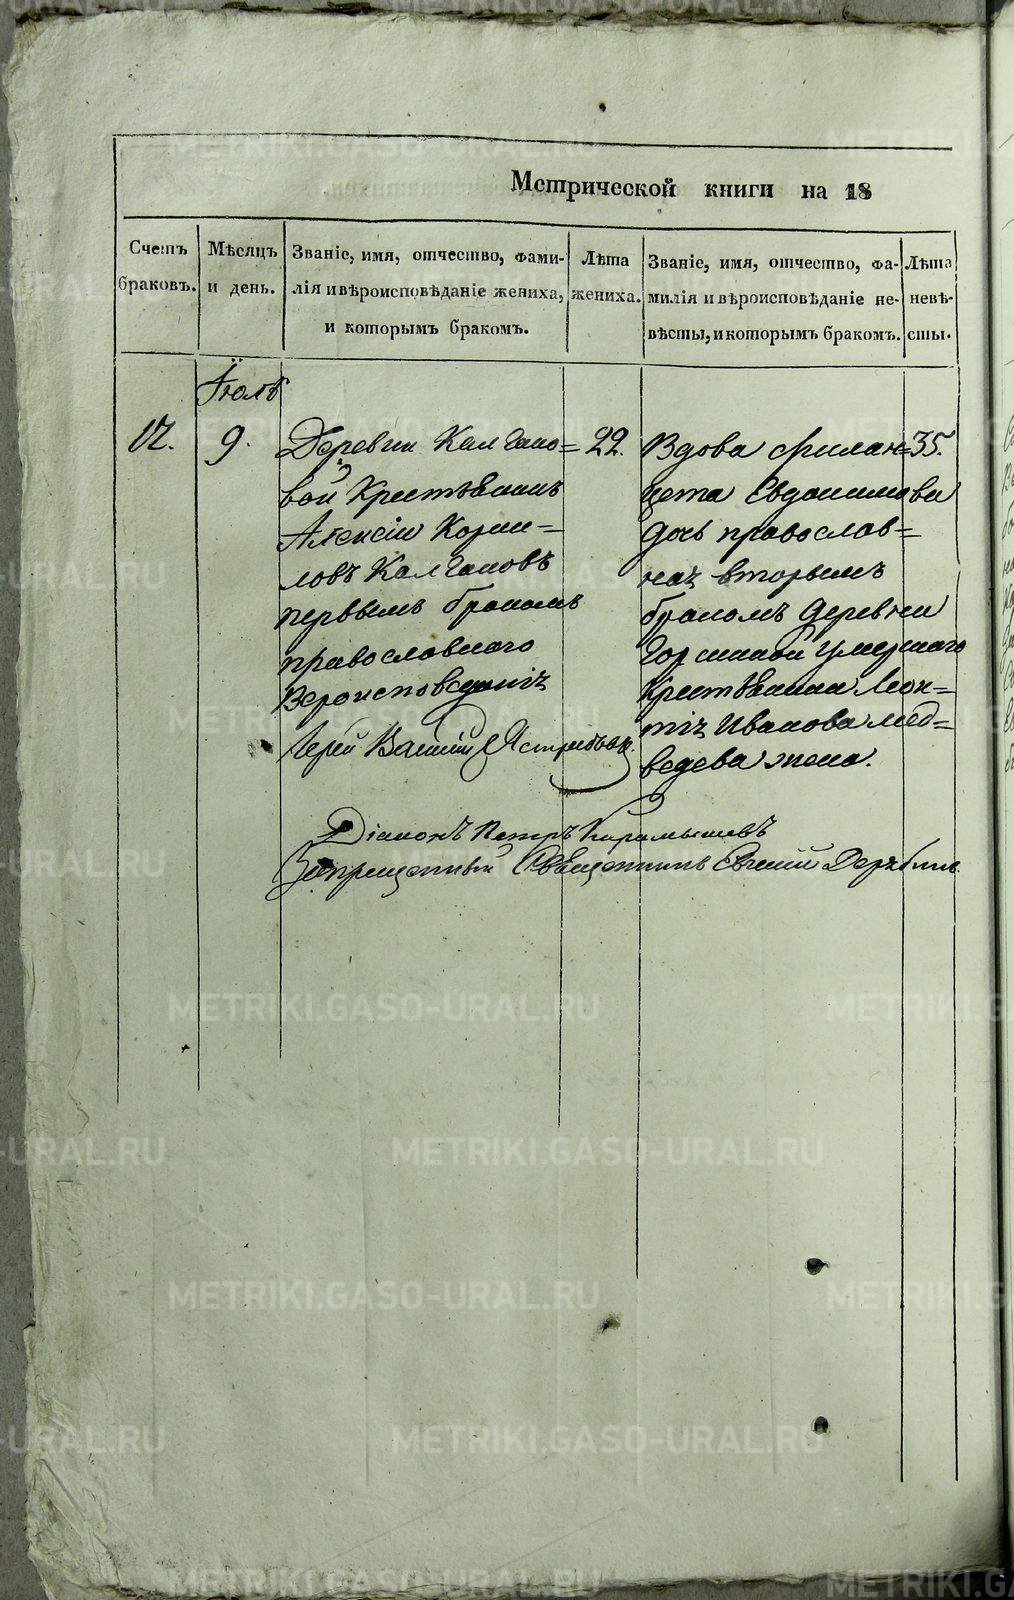 Метрической книги на 18
Счетъ браковъ.
Мѣсяцъ и день.
Званіе, имя, отчество, фами-
лія и вѣроисповѣданіе жениха,
и которымъ бракомъ.
Лѣта
жениха.
Званіе, имя, отчество, фа-
милія и вѣроисповѣданіе не-
вѣсты, и которымъ бракомъ.
Лѣта
невѣ-
сты.
Іюль
9.
Деревни Калгано=
вой Крестьянинъ
Алексій Корни=
ловъ Калгановъ
первымъ бракомъ
православнаго
Вероисповеданія
22.
Вдова
Евдокимова
дочь православ=
ная вторымъ
бракомъ деревни
умершаго
Крестьянина Леон=
тія Иванова Мед=
ведева жена.
35.
Іерей Василій Ястребовъ.
Діаконъ Петръ
Запрещенный Священникъ Евгеній
METRIKI.GASO-URAL.RU